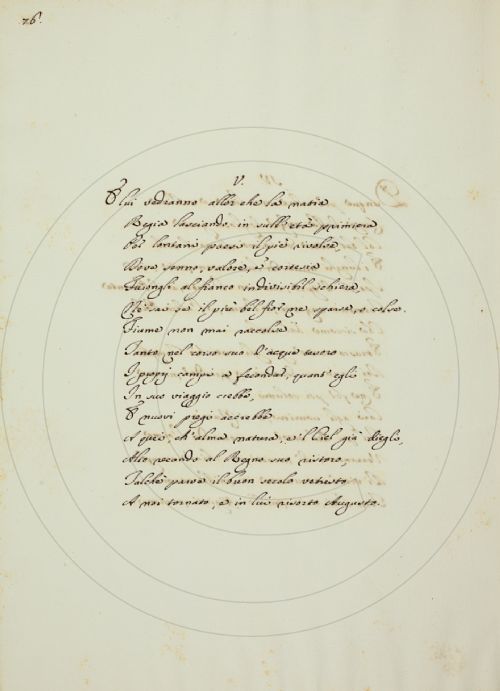 76.
V.
E lui vedranno allor che la natia
Regia lasciando in sull' età primiera
Per lontano paese il piè rivolse
Dove senno, valore, e cortesia
Fecongli al fianco indivisibil schiera
Nè sai se il più bel fior ne sparse, o colse.
Fiume non mai raccolse
Tanto nel corso suo d'acque tesoro
I proprj campi a fecondar, quant' egli
In suo viaggio crebbe,
E nuovi pregi accrebbe
A quei, ch' alma natura, e 'l Ciel già diegli,
Alto recando al Regno suo ristoro,
Talchè parve il buon secolo vetusto
A noi tornato, e in lui risorto Augusto.